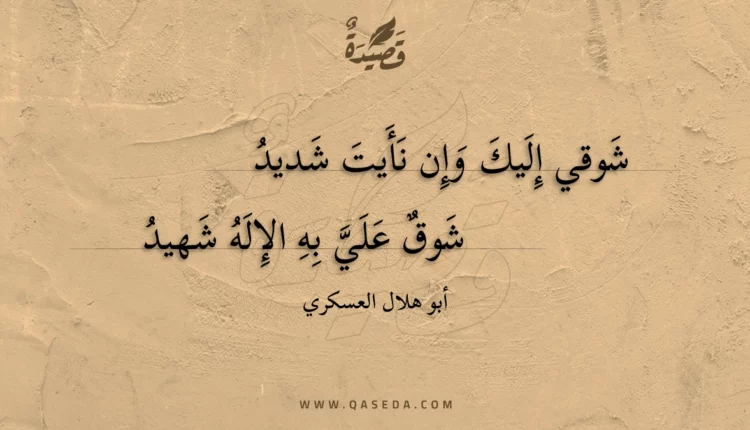 قَصِيدَةٌ
شَوقي إِلَيكَ وَإِن نَأَيتَ شَديدُ
شَوقٌ عَلَيَّ بِهِ الإِلَهُ شَهيدُ
أبو هلال العسكري
WWW.QASEDA.COM